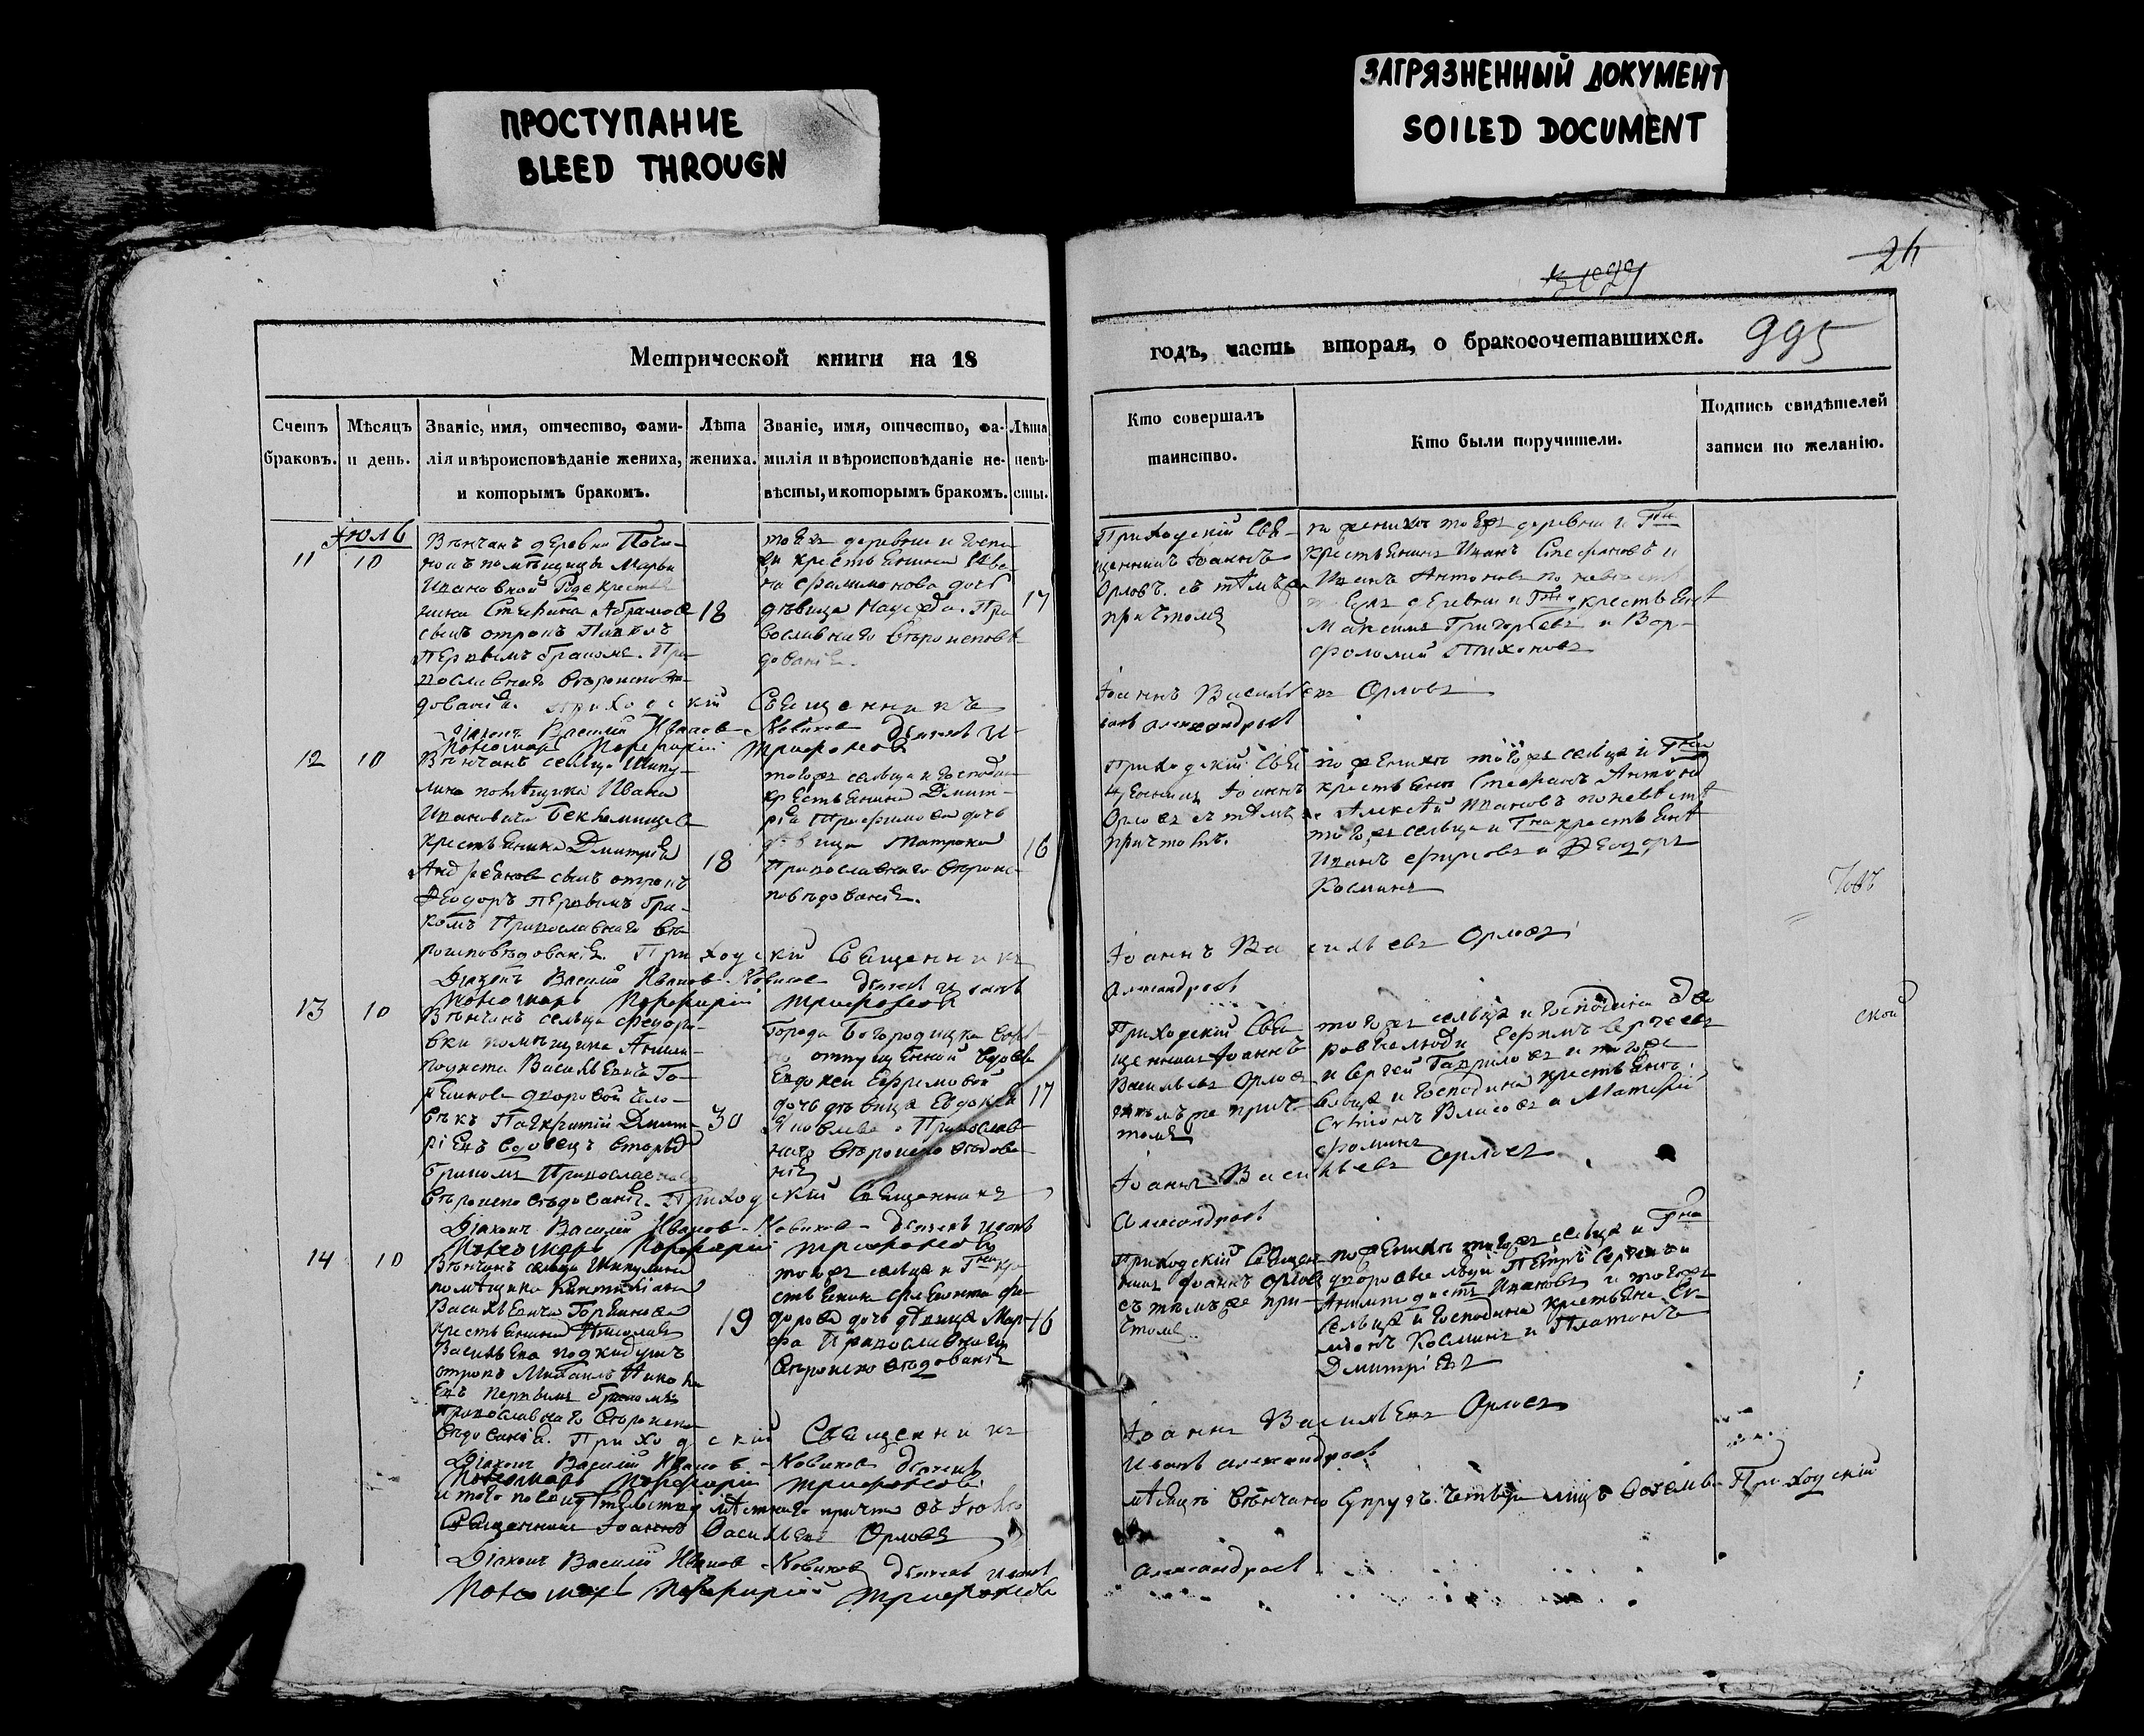 ПРОСТУПАНИЕ
BLEED THROUGN
ЗАГРЯЗНЕННЫЙ ДОКУМЕНТ
SOILED DOCUMENT
26
995
Метрической книги на 18
годъ, часть вторая, о бракосочетавшихся.
Счетъ браковъ.
Мѣсяцъ и день.
Званіе, имя, отчество, фами-
лія и вѣроисповѣданіе жениха,
и которымъ бракомъ.
Лѣта
жениха.
Званіе, имя, отчество, фа-
милія и вѣроисповѣданіе не-
вѣсты, и которымъ бракомъ.
Лѣта
невѣ-
сты.
Кто совершалъ
таинство.
Кто были поручители.
Подпись свидѣтелей
записи по желанію.
Іюль
11
10
Вѣнчанъ деревни Почи-
помѣщицы Марьи
Ивановной
Стефана Абрамова
сынъ отрокъ
первымъ бракомъ. Пра-
вославнаго вѣроисповѣ-
данія.
18
тойже деревни и госпо-
жи крестьянина
Филимонова дочь
дѣвица Надежда. Пра
вославнаго вѣроисповѣ
данія.
17
Приходскій Свя-
щенникъ Іоаннъ
Орловъ съ тѣмъже
причтомъ
по женихѣ тойже деревни и Гжи
крестьянинъ Иванъ Стефановъ и
Иванъ Антоновъ по невѣстѣ
деревни и Гжи крестьяне
Максимъ Григорьевъ и Вар-
фоломей Тихоновъ
Приходскій Священникъ Іоаннъ Васильевъ Орловъ
Діаконъ Василій Ивановъ Новиковъ Дьячекъ Иванъ Александровъ
Пономарь Порфирій Трифоновъ
12
10
Вѣнчанъ сельца Шипу-
лина помѣщика Ивана
Ивановича Бекленищева
крестьянина Дмитрія
Андреянова сынъ отрокъ
Ѳеодоръ первымъ бра-
комъ Православнаго вѣ-
роисповѣданія.
18
тогоже сельца и господина
крестьянина Дмит-
рія Трофимова дочь
дѣвица Матрона
Православнаго вѣроис-
повѣданія.
16
Приходскій Свя
щенникъ Іоаннъ
Орловъ съ тѣмъ же
причтомъ.
по женихѣ тогоже сельца и Гна
крестьяне Стефанъ Антоно
Алексѣй Ивановъ по невѣстѣ
тогоже сельца и Гна крестьяне
Иванъ Фирсовъ и Ѳеодоръ
Косминъ
Приходскій Священникъ Іоаннъ Васильевъ Орловъ
Діаконъ Василій Ивановъ Новиковъ Дьячекъ Иванъ Александровъ
Пономарь Порфирій Трифоновъ
13
10
Вѣнчанъ сельца Федоро-
вки помѣщика Аним-
подиста Васильевича Го-
ряинова дворовой чело-
вѣкъ Панкратій Дмит-
ріевъ вдовецъ вторымъ
бракомъ Православнаго
вѣроисповѣданія.
30
города Богородицка
отпущенной вдовы
Евдокіи Ефремовой
дочь дѣвица Евдокія
Яковлева. Православ-
наго вѣроисповѣдова-
нія
17
Приходскій Свя
щенникъ Іоаннъ
Васильевъ Орловъ
тѣмъ же прич-
томъ
тогоже сельца и господина дво
ровые люди Ефимъ Сергѣевъ
и Сергей Гавриловъ и тогоже
сельца и господина крестьяне
Симіонъ Власовъ и Матвѣй
Фоминъ
Приходскій Священникъ Іоаннъ Васильевъ Орловъ
Діаконъ Василій Ивановъ Новиковъ Дьячекъ Иванъ Александровъ
Пономарь Порфирій Трифоновъ
14
10
Вѣнчанъ сельца Шипулина
помѣщика
Васильевича Горяинова
крестьянина Николая
Васильева подкидышъ
отрокъ Михаилъ Никола
евъ первымъ бракомъ
Православнаго вѣроиспо-
вѣданія.
19
тогоже сельца и Гна кре
стьянина Филиппа Фе-
дорова дочь дѣвица Мар-
фа Православнаго
вѣроисповѣдованія
16
Приходскій Священ
никъ Іоаннъ Орловъ
съ тѣмъ же при-
чтомъ.
по женихѣ тогоже сельца и Гна
дворовые люди Петръ Сергѣевъ и
Анимподистъ Ивановъ и тогоже
сельца и господина крестьяне
Косминъ и Платонъ
Дмитріевъ
Приходскій Священникъ Іоаннъ Васильевъ Орловъ
Діаконъ Василій Ивановъ Новиковъ Дьячекъ Иванъ Александровъ
Пономарь Порфирій Трифоновъ
Итого по свидѣтельству мѣстнаго причта въ Іюлѣ мѣсяцѣ вѣнчано супруговъ четыре лицъ восемь Приходскій
Священникъ Іоаннъ Васильевъ Орловъ
Діаконъ Василій Ивановъ Новиковъ Дьячекъ Иванъ Александровъ
Пономарь Порфирій Трифоновъ